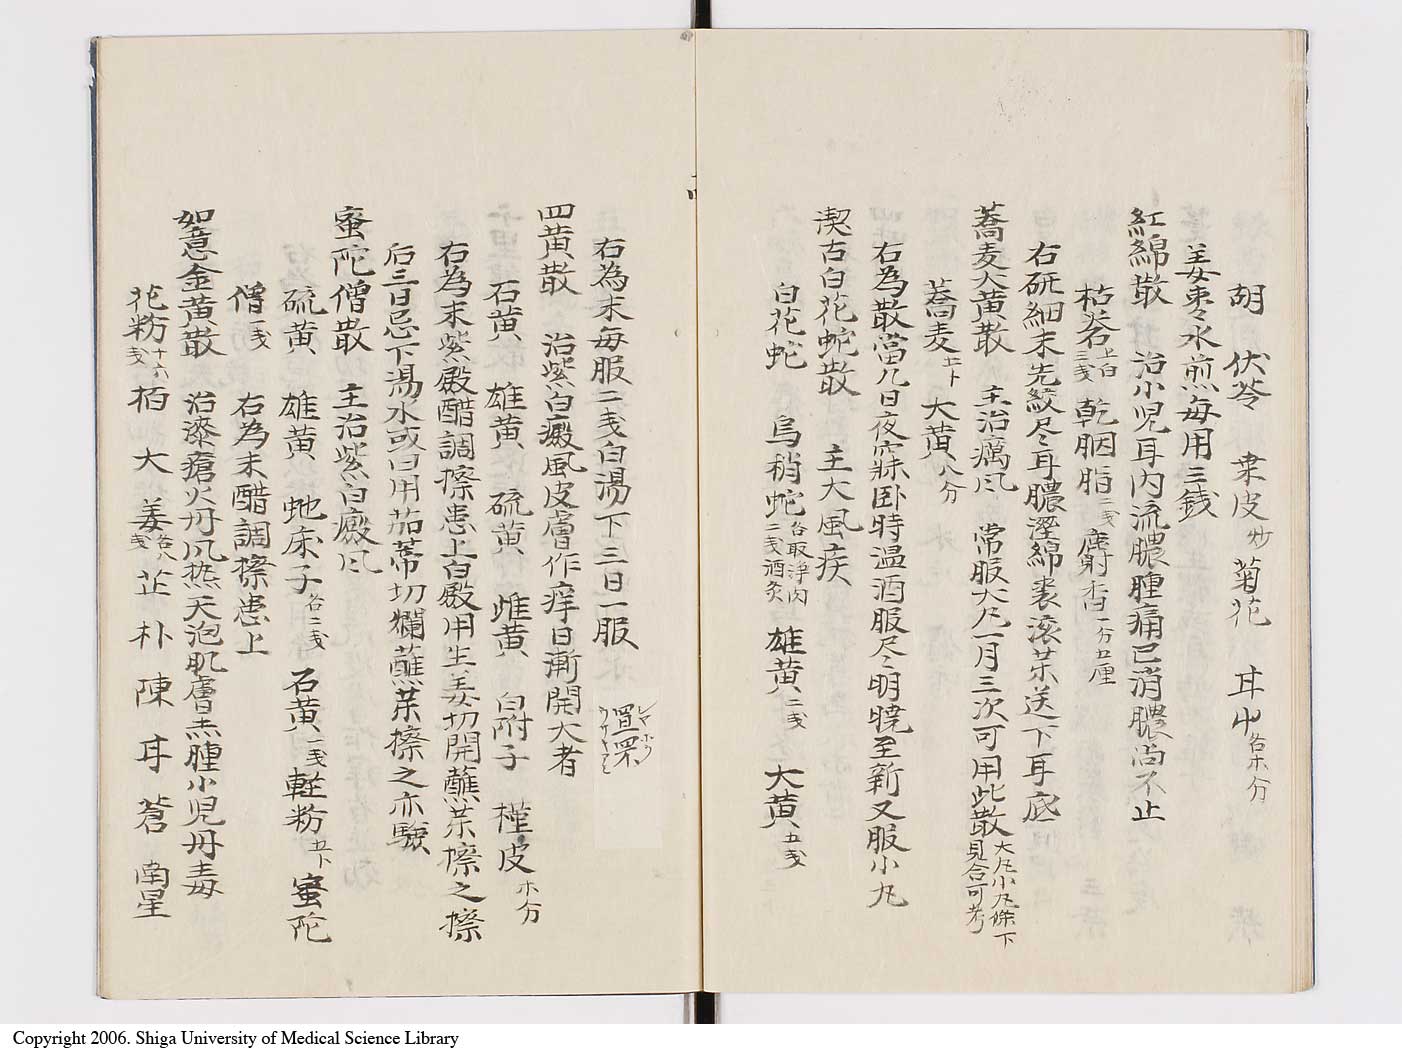 胡 伏苓 桒皮炒 菊花 耳中各木分
姜枣水煎毎用三銭
紅綿散 治小児耳内流膿腫痛已消膿尚不止
枯礬上白三戔 乾胭脂二戔 麝香一分五厘
右研細末先絞尽耳膿溼綿裹滚茶送下耳底
蕎麦大黄散 主治癘風 常服大九一月三次可用此散大九小九条下見合可考
蕎麦五卜 大黄八分
右為散當九日夜寐臥時温酒服尽明暁至新又服小九
潔古白花蛇散 主大風疾
白花蛇 烏稍蛇各取浄肉二戔酒炙 雄黄二戔 大黄五戔
右為末毎服二戔白湯下三日一服
四黄散 治紫白癜風皮膚作痒日漸開大者
石黄 雄黄 硫黄 雌黄 白附子 槿皮木分
右為末紫殿醋調擦患上白殿用生姜切開蘸茶擦之擦
后三日忌下湯水或曰用茄蒂切爛蘸茶擦之亦驗
蜜陀僧散 主治紫白癜风
硫黄 雄黄 虵床子各二戔 石黄一戔 軽粉五卜 蜜陀
僧一戔 右為末醋調擦患上
如意金黄散 治漆瘡火丹风热天泡肌膚赤腫小児丹毒
花粉十六戔 栢 大 姜各八戔 芷 朴 陳 甘 蒼 南星